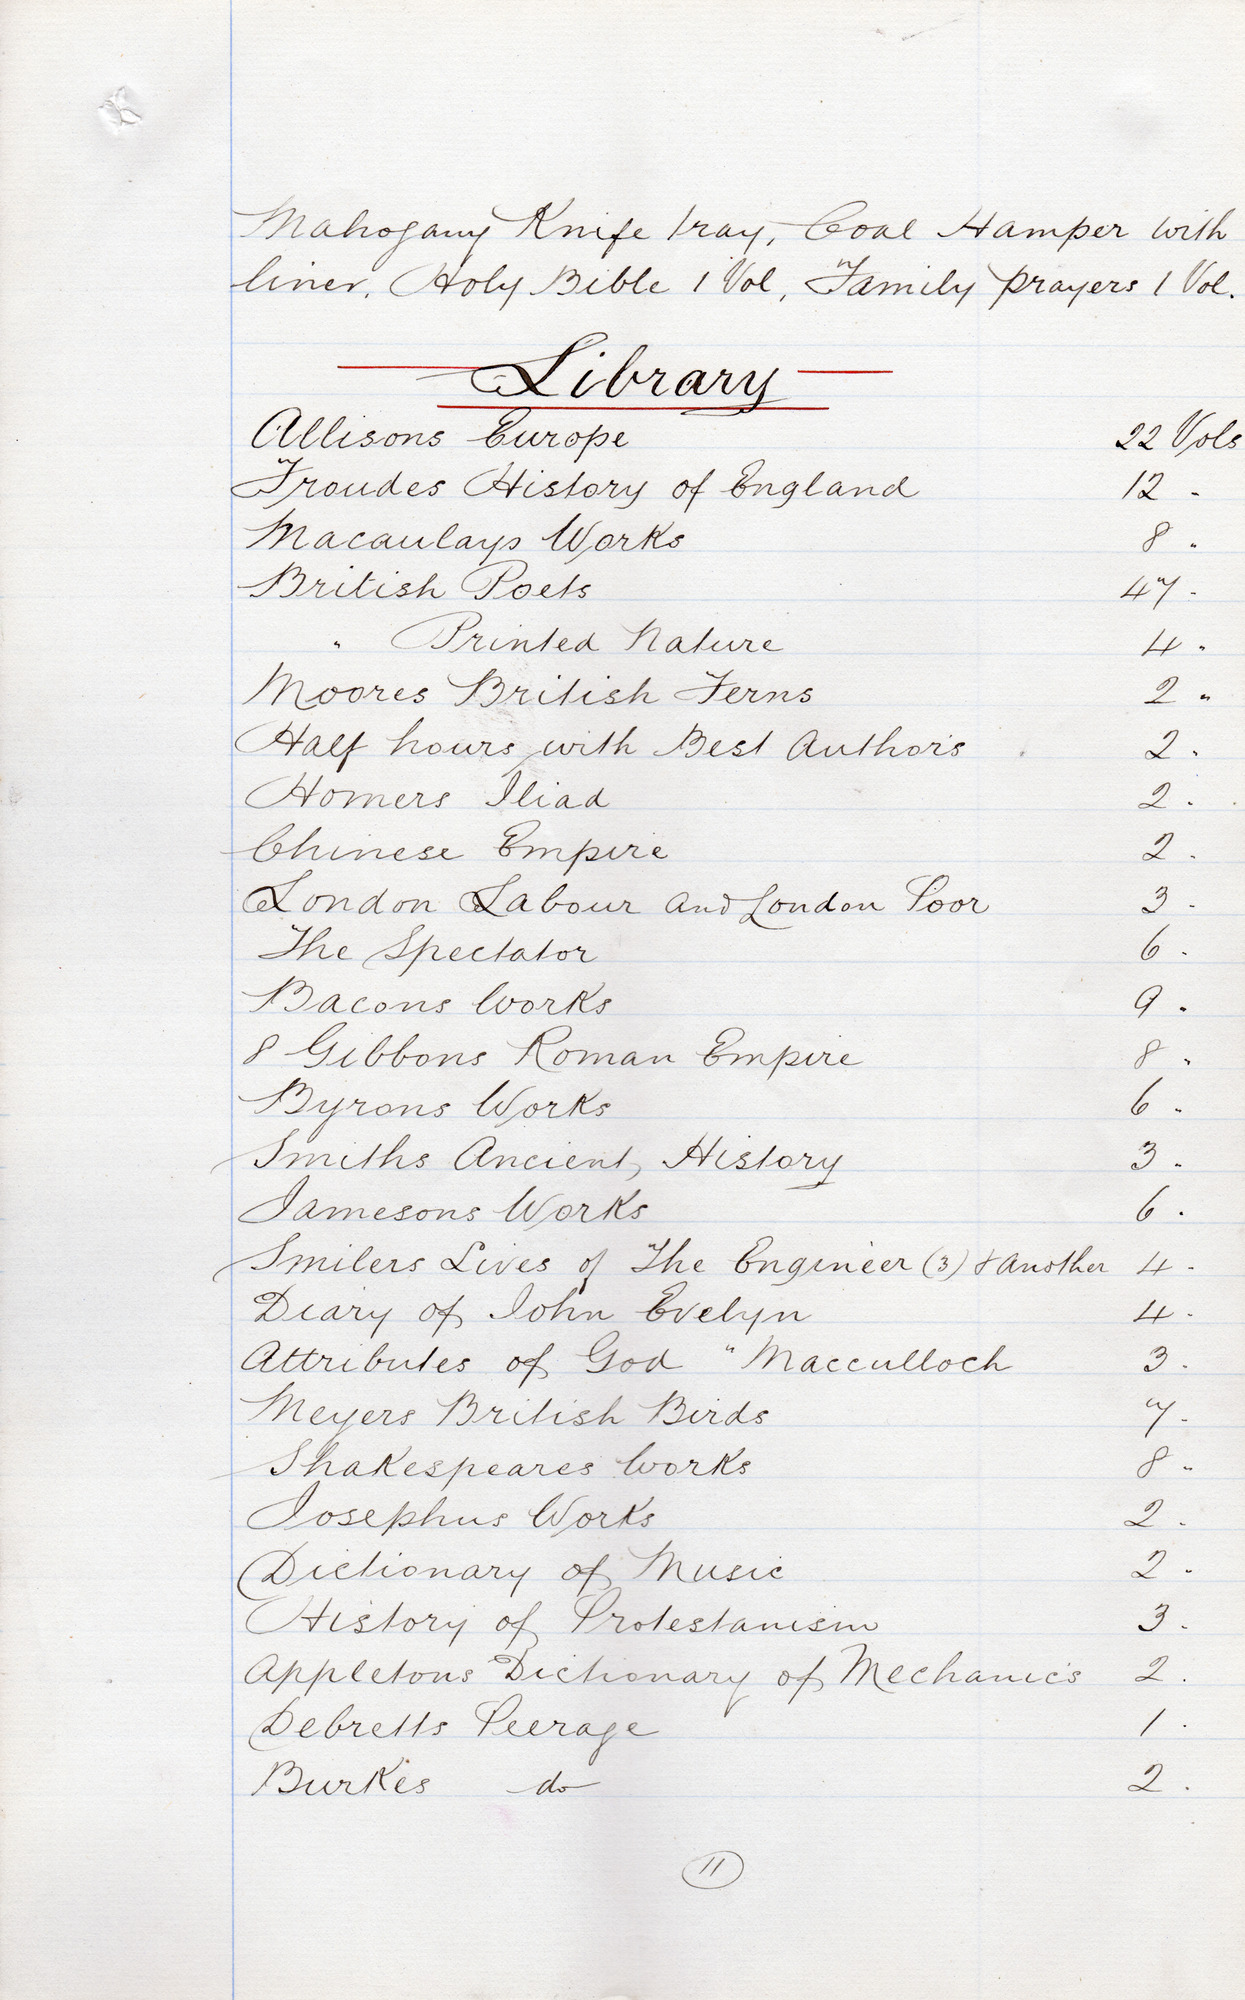 Mahogany Knife tray, Coal Hamper with
liner, Holy Bible 1 Vol, Family prayers 1 Vol.
Library
Allisons Europe 22 Vols
Froudes History of England 12 "
Macaulays Works 8 "
British Poets 47 "
" Printed Nature 4 "
Moores British Ferns 2 "
Half hours with Best Authors 2 "
Homers Iliad 2 "
Chinese Empire 2 "
London Labour and London Poor 3 "
The Spectator 6 "
Bacons Works 9 "
8 Gibbons Roman Empire 8 "
Byrons Works 6 "
Smiths Ancient, History 3 "
Jamesons Works 6 "
Smilers Lives of The Engineer (3) & another 4 "
Diary of John Evelyn 4 "
Attributes of God "Macculloch 3 "
Meyers British Birds 7 "
Shakespeares Works 8 "
Josephus Works 2 "
Dictionary of Music 2 "
History of Protestanism 3 "
Appletons Dictionary of Mechanics 2 "
Debretts Peerage 1 "
Burkes do 2 "
11